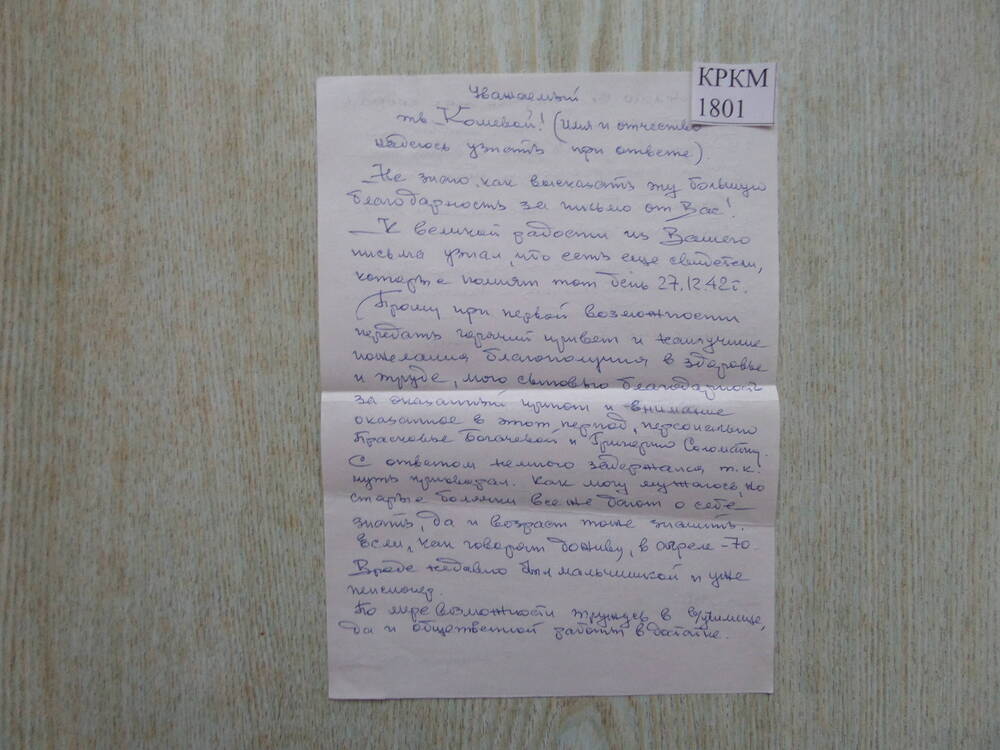 КРКМ
1801
Уважаемый
тв Комевой! (имя и отчество
надеюсь узнать при ответе).
Не знаю, как высказать эту большую
благодарность за письмо от Вас!
К великой радости из Вашего
письма узнал, что есть еще свидетели,
которые помнят тот день 27.12.42 г.
Прошу при первой возможности
передать горячий привет и наилучшие
пожелания благополучия в здоровье
и труде, мою сыновью благодарность
за оказанный приют и внимание
оказанное в этот период, персонально
Прасковье Богачевой и Григорию Соломатину.
С ответом немного задержался т.к.
чуть прихворал. Как могу мужаюсь, но
старые болячки все же дают о себе
знать, да и возраст тоже значить.
Если, как говорят доживу, в апреле - 70.
Вроде недавно был мальчишкой и уже
пенсионер.
По мере возможности тружусь в в/училище,
да и общественной работы в достатке.